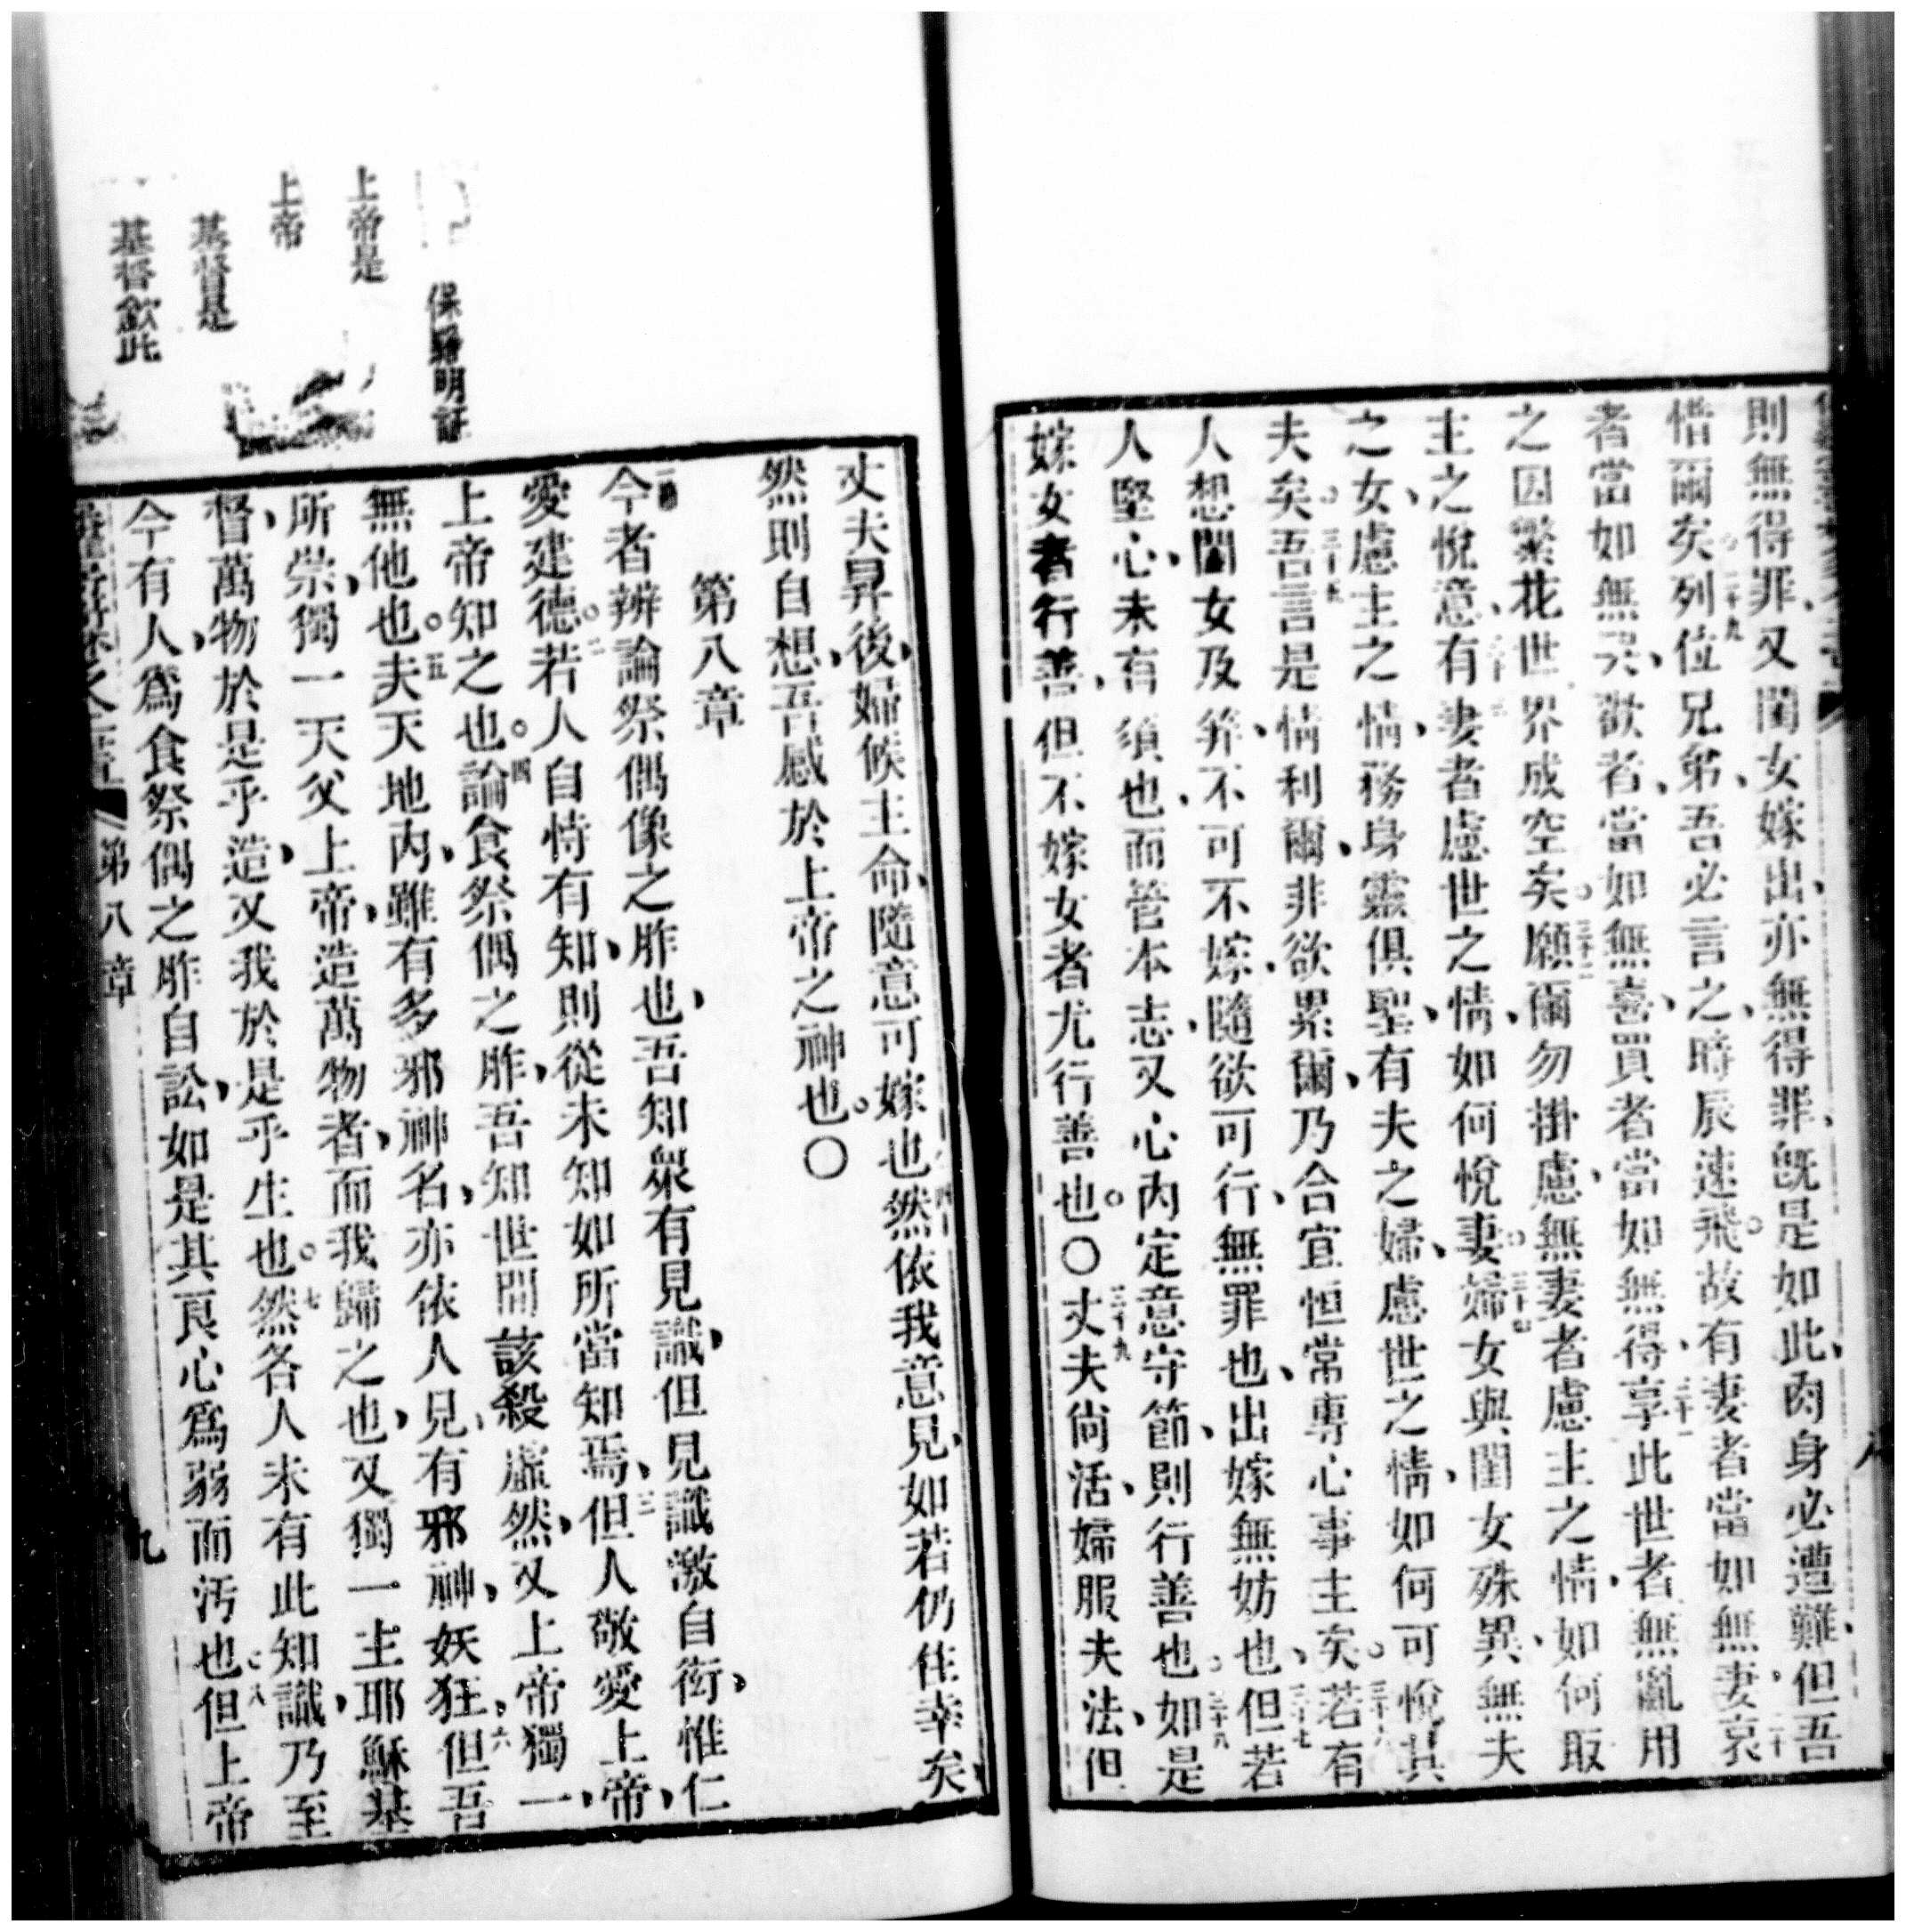 則無得罪、又閨女嫁出、亦無得罪、旣是如此、肉身必遭難、但吾
惜爾矣。二十九列位兄弟、吾必言之、時辰速飛。故有妻者當如無妻、三十哀
者當如無哭、歡者、當如無喜、買者當如無得、三十一享此世者無亂用
之因繁花世界成空矣。三十二願爾勿掛慮、無妻者慮主之情、如何取
主之悅意、三十三有妻者慮世之情、如何悅妻。三十四婦女與閨女殊異、無夫
之女、慮主之情、務身靈俱聖、有夫之婦、慮世之情、如何可悅其
夫矣。三十五吾言是情利爾、非欲累爾、乃合宜恒常專心事主矣。三十六若有
人想閨女及笄、不可不嫁、隨欲可行、無罪也、出嫁無妨也、三十七但若
人堅心、未有須也、而管本志、又心內定意守節、則行善也。三十八如是
嫁女者行善、但不嫁女者尤行善也。〇三十九丈夫尚活、婦服夫法、但
丈夫昇後、婦候主命、隨意可嫁也四十然依我意見、如若仍住幸矣、
然則自想、吾感於上帝之神也。〇
第八章
一今者辨論祭偶像之胙也、吾知衆有見識、但見識激自衒、惟仁
愛建德。二若人自恃有知、則從未知如所當知焉、三但人敬愛上帝、
上帝知之也。四論食祭偶之胙、吾知世間該殺虛然、又上帝獨一、
無他也。五夫天地內、雖有多邪神名、亦依人見、有邪神、妖狂、六但吾
所崇、獨一天父上帝、造萬物者、而我歸之也、又獨一主耶穌基
督、萬物於是乎造、又我於是乎生也。七然各人未有此知識、乃至
今有人、爲食祭偶之胙自訟、如是其良心爲弱而汚也。八但上帝
第八章
九
保羅明証
上帝是
上帝
基督是
基督欽此